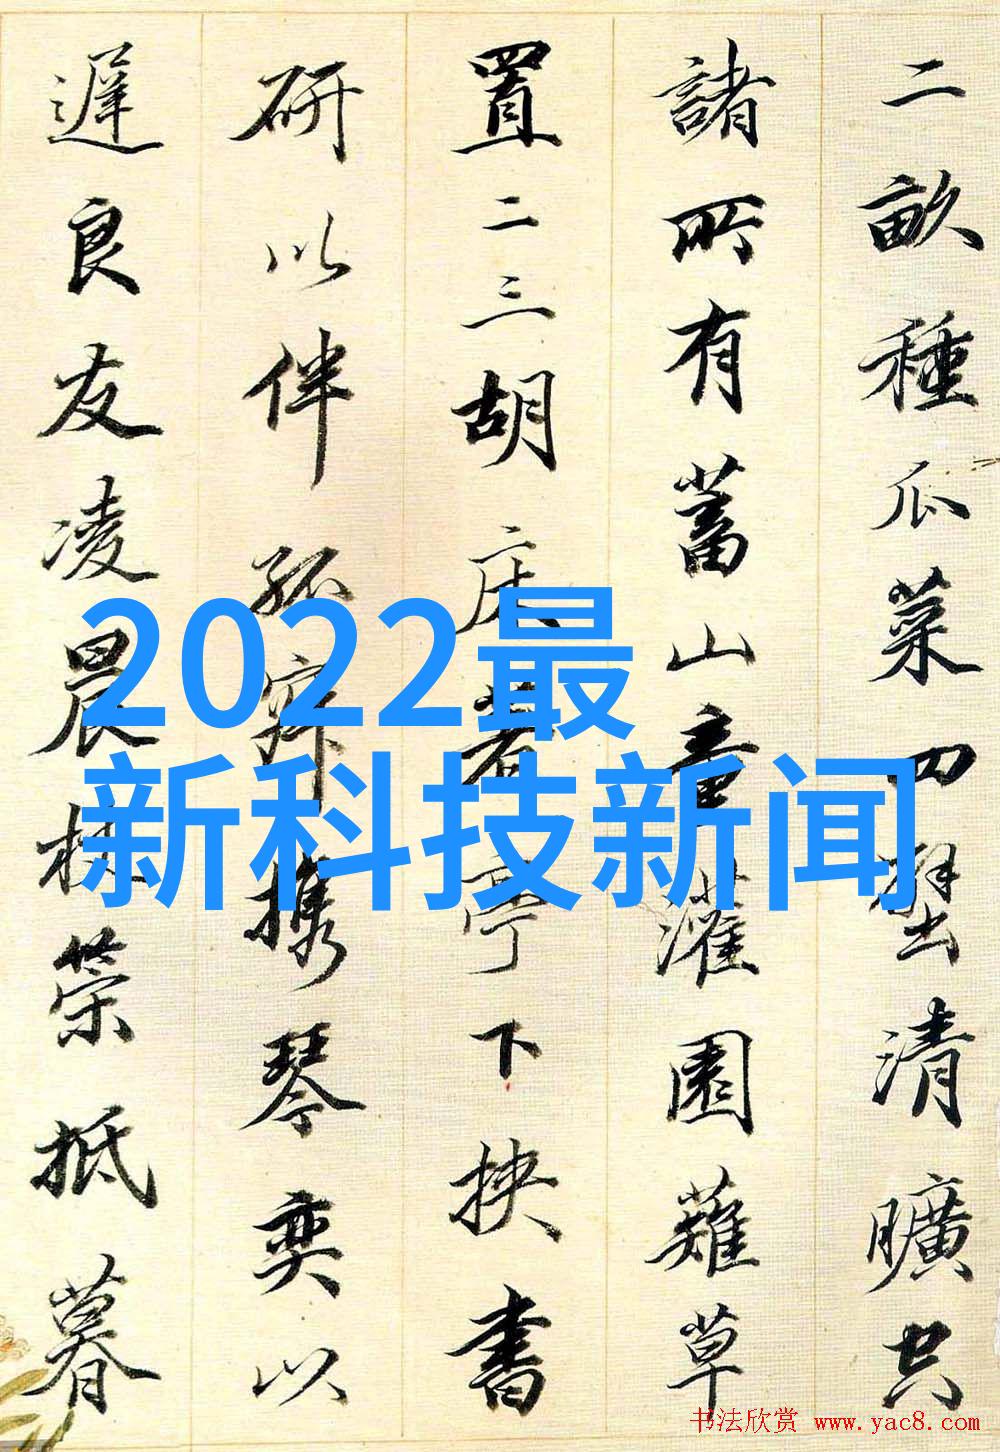 二畝種瓜菜四壁清曠空
諸所有蓄山童灌園薙草
置二三胡床著亭下挾書
研以伴孤寂携琴奕以
遲良友凌晨杖策抵暮
2022最
新科技新闻
书法欣赏 www.yac8.com